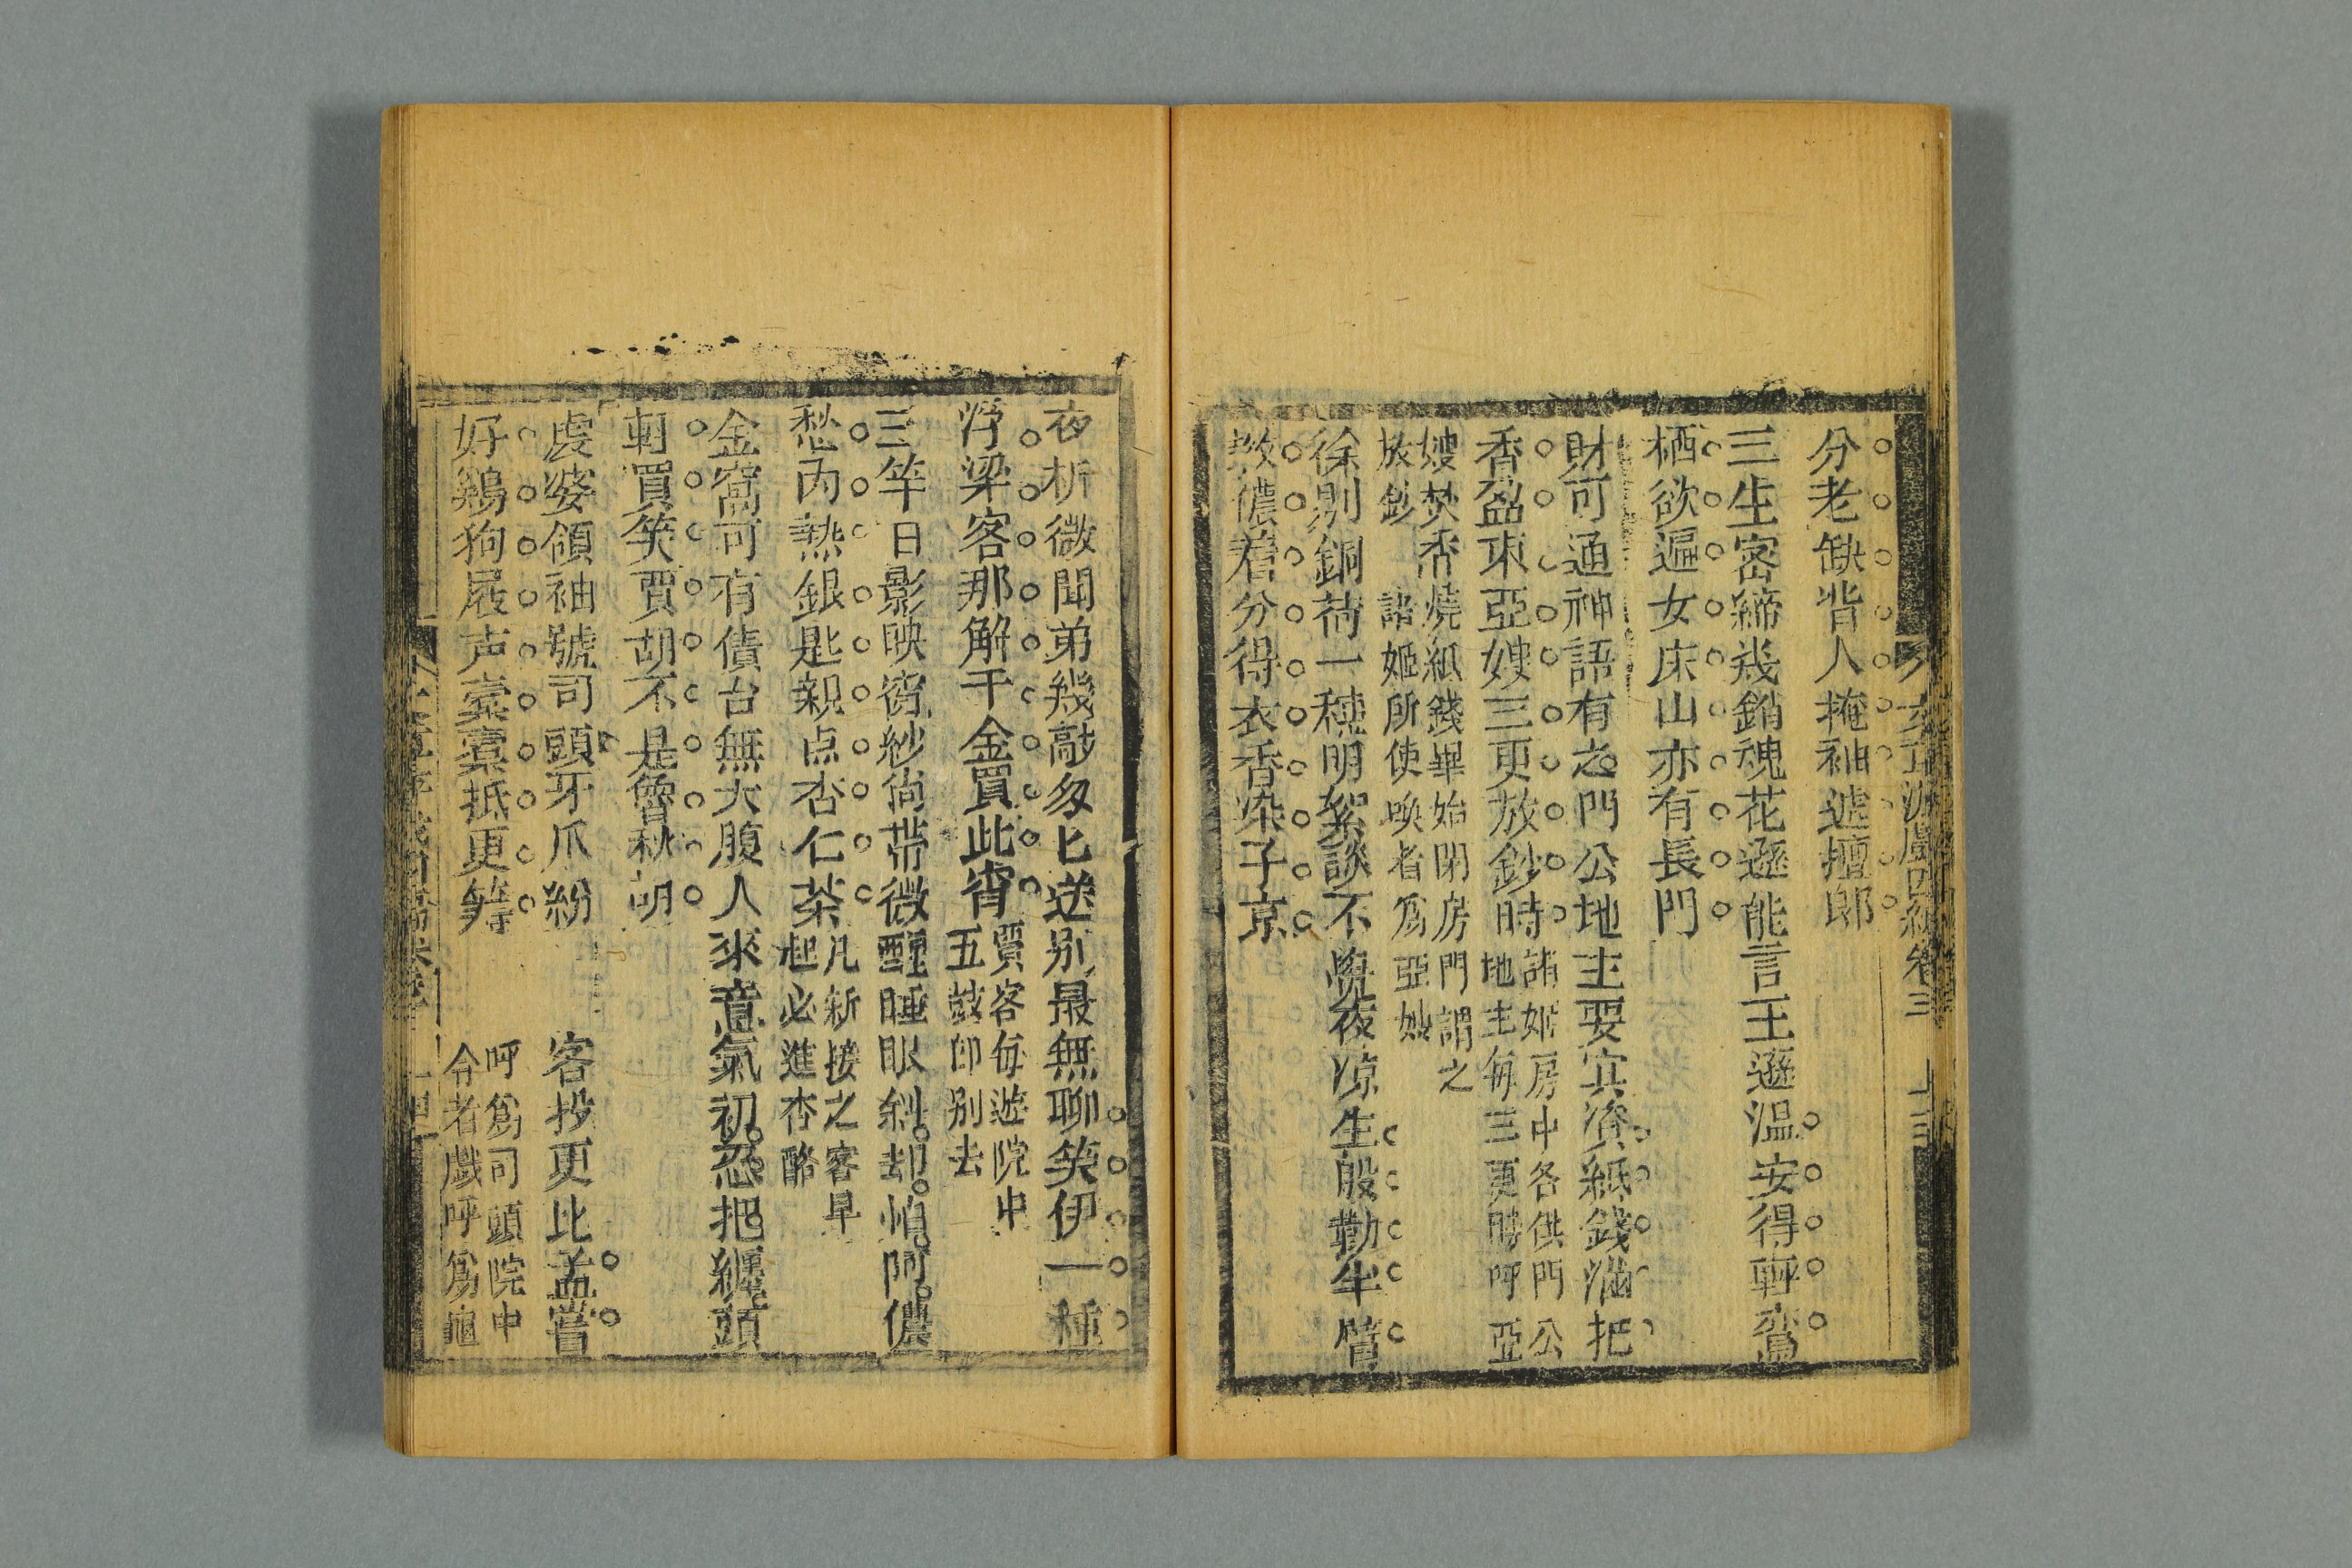 分老缺背人掩袖遽擅郎
三生密締幾銷魂花遜能言玉遜溫安得聊鸞
栖欲遍女床山亦有長門
財可通神語有之門公地主要寘資紙錢滿把
香盈束亞嫂三更放鈔時諸姬房中各供門公
地主每三更時呼亞
嫂焚香燒紙錢畢始閉房門謂之
放鈔 諸姬所使喚者為亞嫂
徐剔銅荷一穗明絮談不覺夜凉生殷勤半臂
教儂着分得衣香染子京
夜柝微聞弟幾敲匆匕送别最無聊笑伊一種
浮梁客那解千金買此宵賈客每遊院中
五鼓卽别去
三竿日影映窗紗尚帶微醒睡眼斜却怕阿儂
愁內熱銀匙親点杏仁茶凡新接之客早
起必進杏酪
金窩可有債台無大腹人來意氣初忍把纏頭
輕買笑賈胡不是魯秋胡
虔婆領袖號司頭牙爪紛 客抄更比孟嘗
好鷄狗屐声橐橐抵更籌
呼為司頭院中
令者戲呼為龜